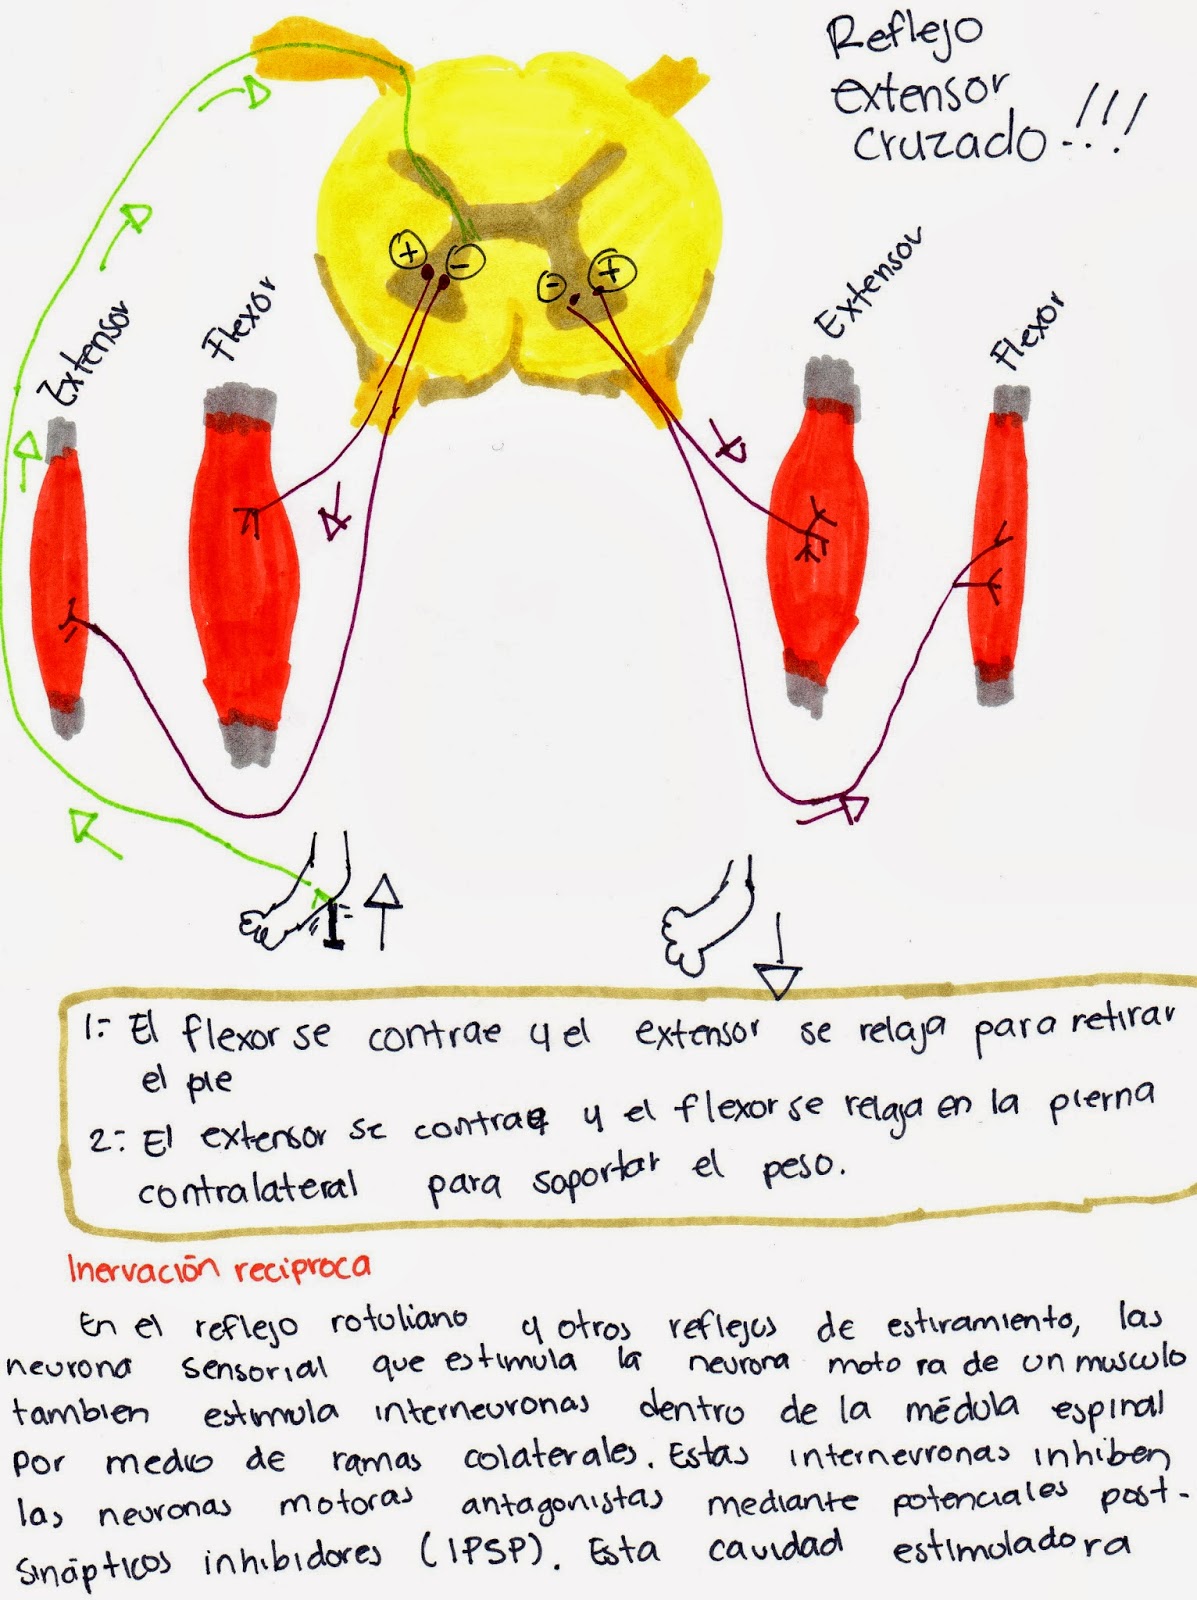 Reflejo
extensor
cruzado !!!
Extensor
Flexor
Extensor
Flexor
+
-
-
+
1.- El flexor se contrae y el extensor se relaja para retirar
el pie
2.- El extensor se contrae y el flexor se relaja en la pierna
contralateral para soportar el peso.
Inervación reciproca
En el reflejo rotuliano y otros reflejos de estiramiento, las
neurona sensorial que estimula la neurona motora de un musculo
tambien estimula interneuronas dentro de la médula espinal
por medio de ramas colaterales. Estas interneuronas inhiben
las neuronas motoras antagonistas mediante potenciales post-
sinápticos inhibidores (IPSP). Esta cavidad estimuladora